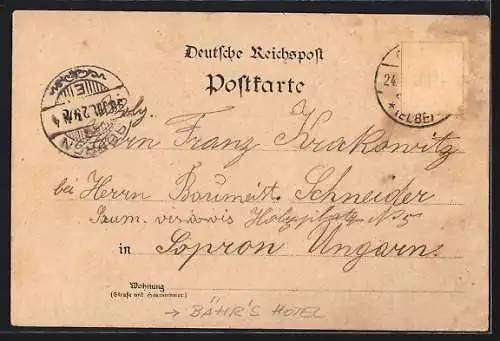 Deutsche Reichspost
Postkarte
24.
*(ELBE)
Herrn Franz Krakowitz
bei Herrn Baumeist. Schneider
vis à vis Holzplatz No 5
in Sopron Ungarn.
Wohnung
(Straße und Hausnummer)
→ BÄHR'S HOTEL